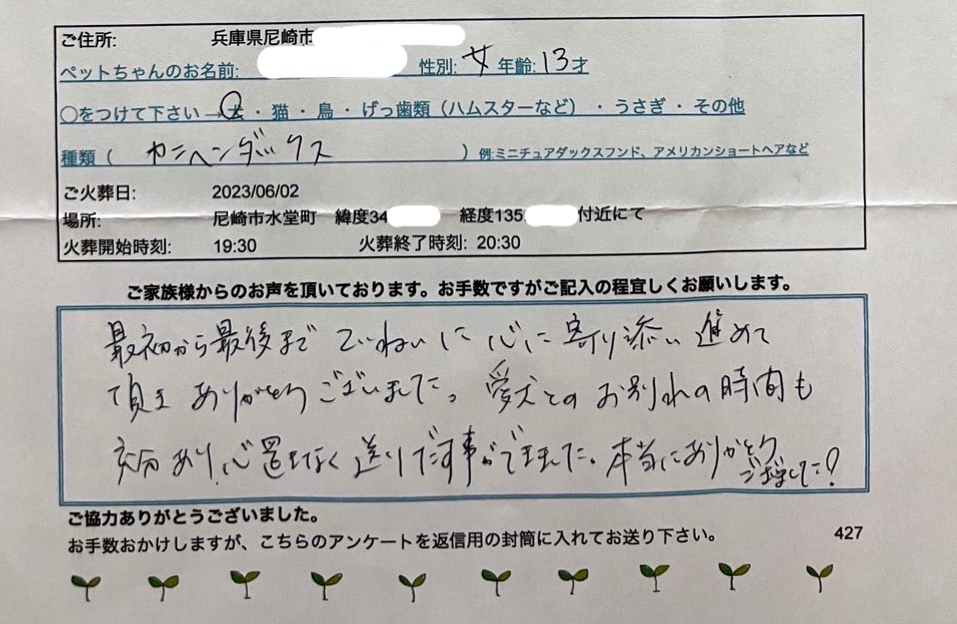 ご住所: 兵庫県尼崎市
ペットちゃんのお名前: 性別: 女 年齢: 13才
〇をつけて下さい→犬・猫・鳥・げっ歯類（ハムスターなど）・うさぎ・その他
種類（ カニヘンダックス ）例:ミニチュアダックスフンド、アメリカンショートヘアなど
ご火葬日: 2023/06/02
場所: 尼崎市水堂町 緯度34 経度135 付近にて
火葬開始時刻: 19:30 火葬終了時刻: 20:30
ご家族様からのお声を頂いております。お手数ですがご記入の程宜しくお願いします。
最初から最後まで ていねいに 心に寄り添い 進めて
頂き ありがとうございました。愛犬とのお別れの時間も
充分あり、心置きなく送りだす事ができました。本当にありがとう
ございました!
ご協力ありがとうございました。
お手数おかけしますが、こちらのアンケートを返信用の封筒に入れてお送り下さい。 427